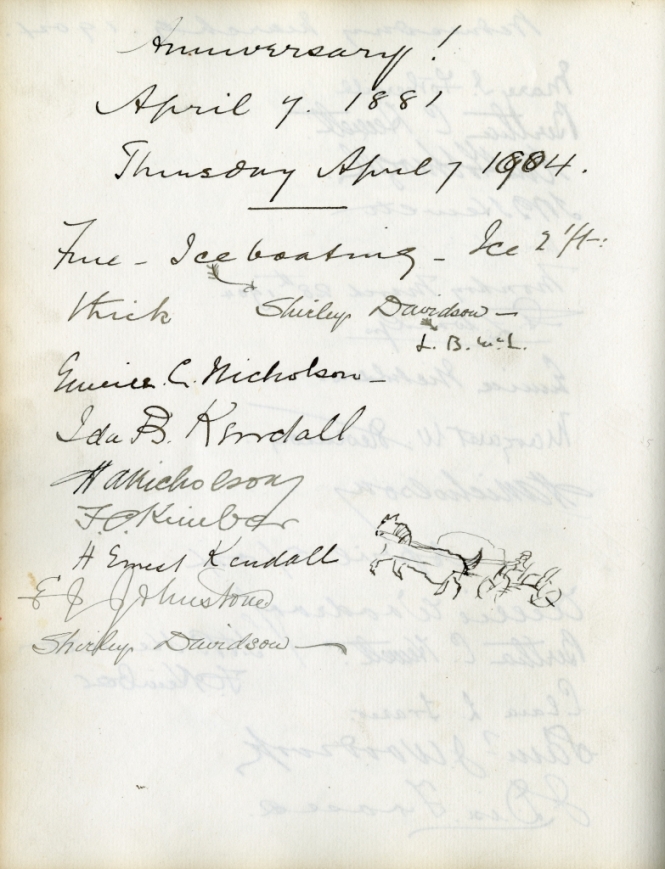 Anniversary!
April 7. 1881
Thursday April 7 1904.
Fine - Ice boating - Ice 2 ft.
thick Shirley Davidson
L. B. McL.
Eunice C. Nicholson
Ida B. Kendall
H A Nicholson
F. C. Kimber
H Ernest Kendall
E J Johnstone
Shirley Davidson